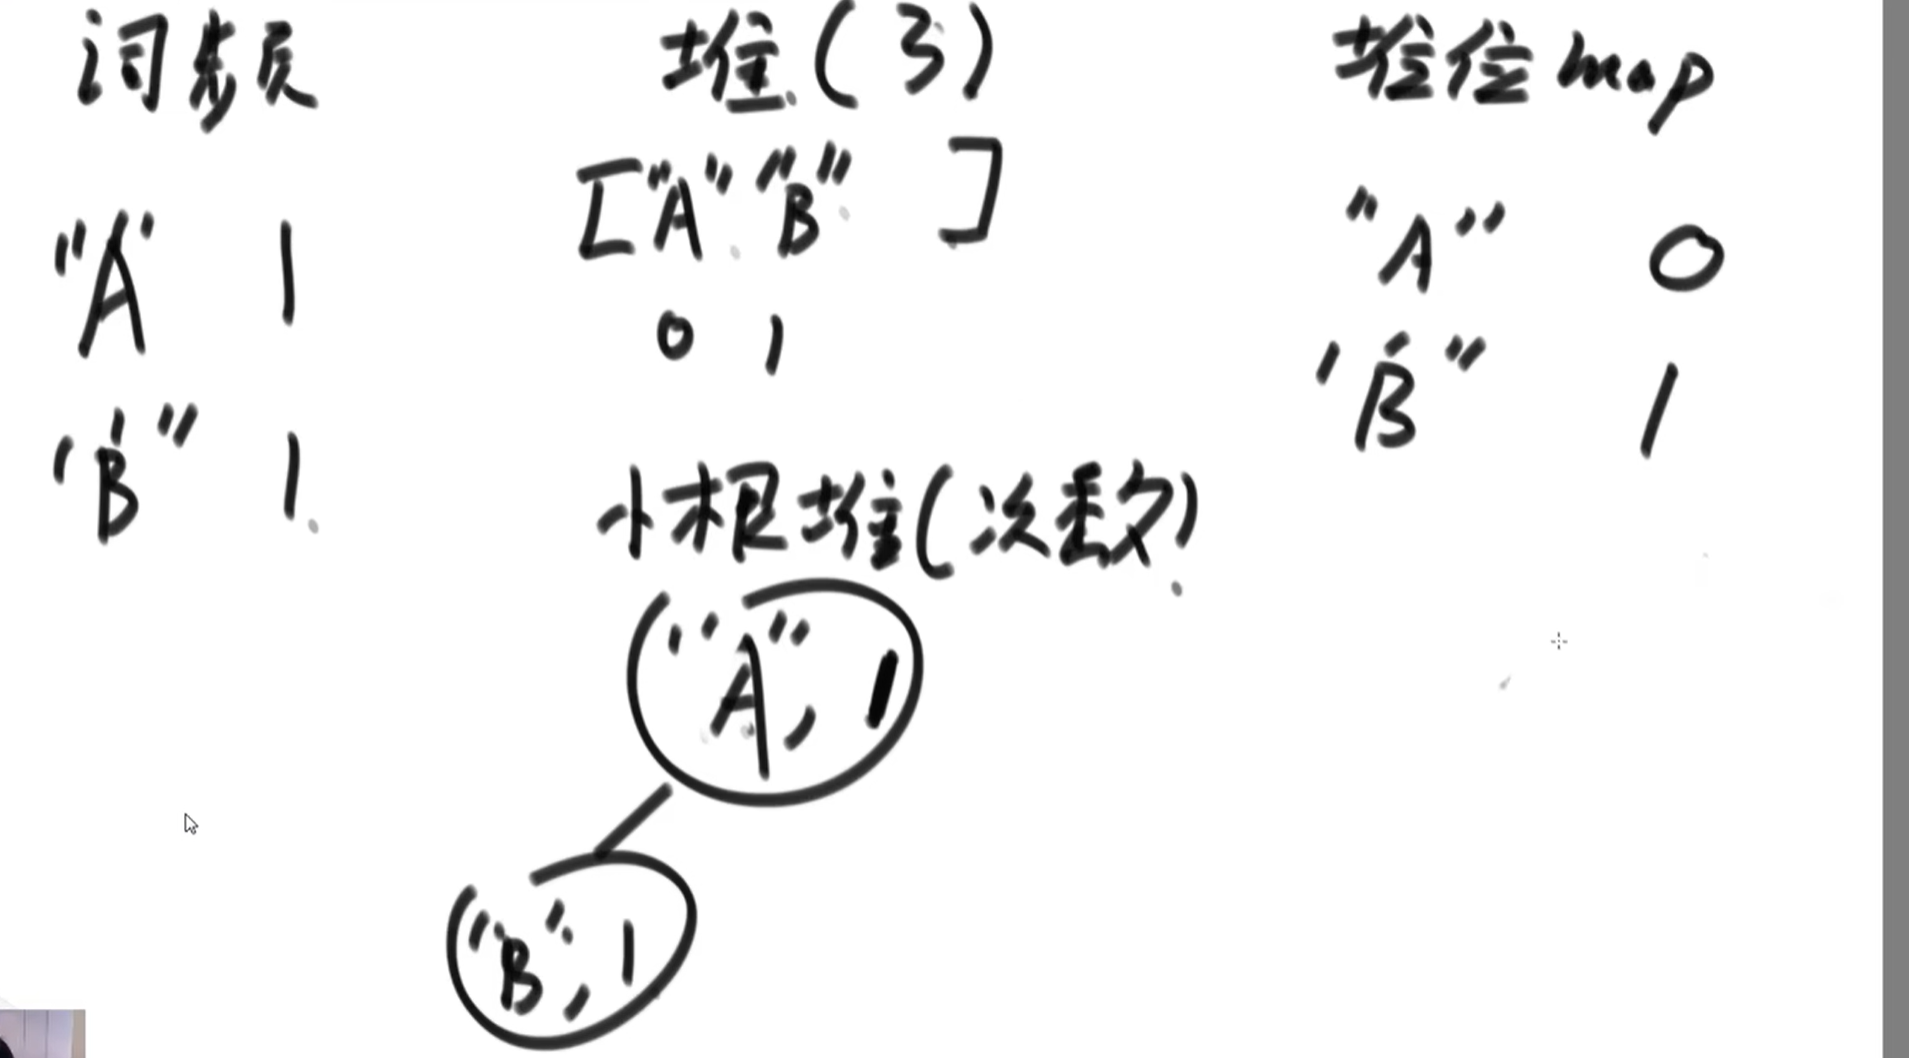 词频
"A" 1
"B" 1
堆(3)
["A" "B" ]
0 1
小根堆(次数)
"A", 1
"B", 1
堆位map
"A" 0
"B" 1